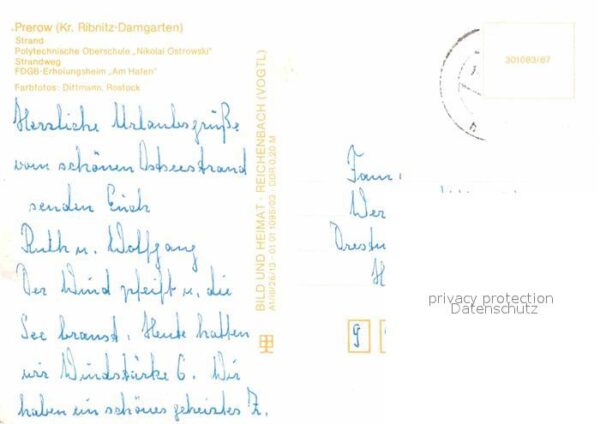 Prerow (Kr. Ribnitz-Damgarten)
Strand
Polytechnische Oberschule „Nikolai Ostrowski"
Strandweg
FDGB-Erholungsheim „Am Hafen"
Farbfotos: Dittmann, Rostock
Herzliche Urlaubsgrüße
vom schönen Ostseestrand
senden Euch
Ruth u. Wolfgang
Der Wind pfeift u. die
See braust. Heute hatten
wir Windstärke 6. Wir
haben ein schönes geheiztes Z.
BILD UND HEIMAT · REICHENBACH (VOGTL)
301083/67
Fam.
Wer
9
privacy protection
Datenschutz